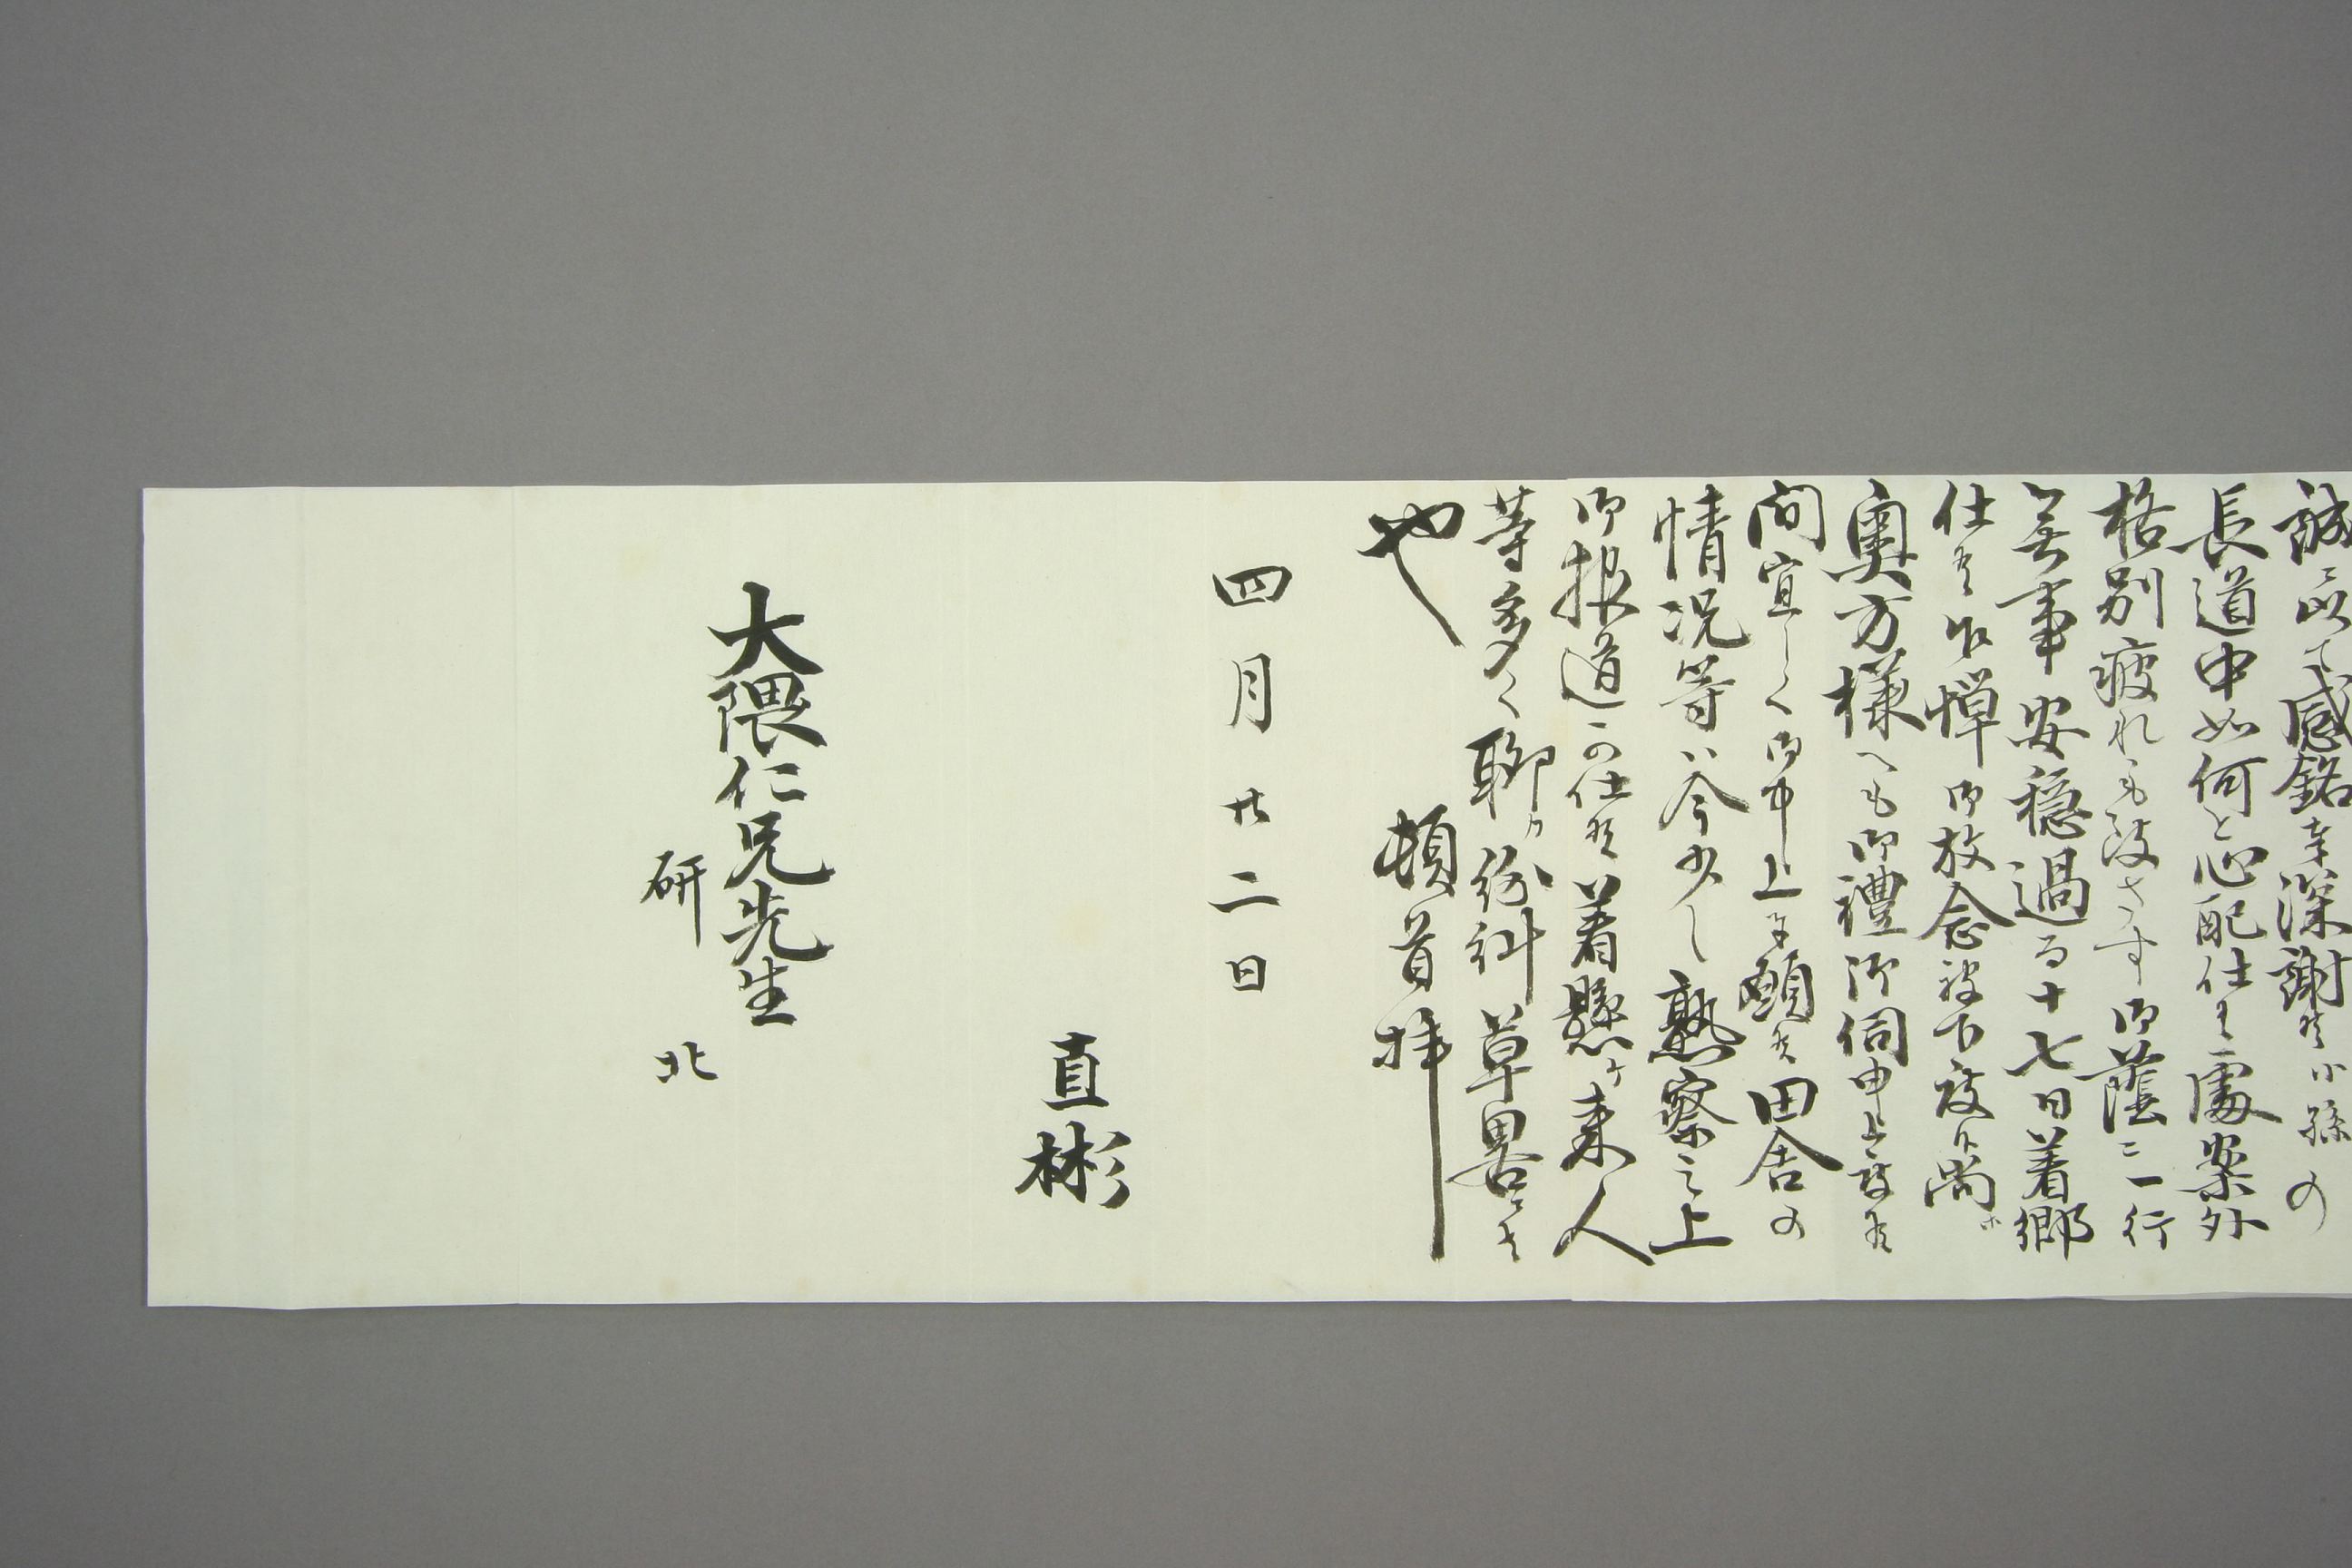 誠ニ以て感銘奉深謝候小孫の
長道中如何と心配仕候處案外
格別疲れも致さす御蔭ニ一行
無事安穏過る十七日着郷
仕候乍憚御放念被下度候尚
奥方様へも御禮御伺申上度候
間宜しく御申上奉願候田舎の
情況等ハ今少し熟察之上
御報道可仕候着懸ケ来人
等多く聊カ紛糾草畧
也 頓首拝
四月廿二日
直彬
大隈仁兄先生
研北